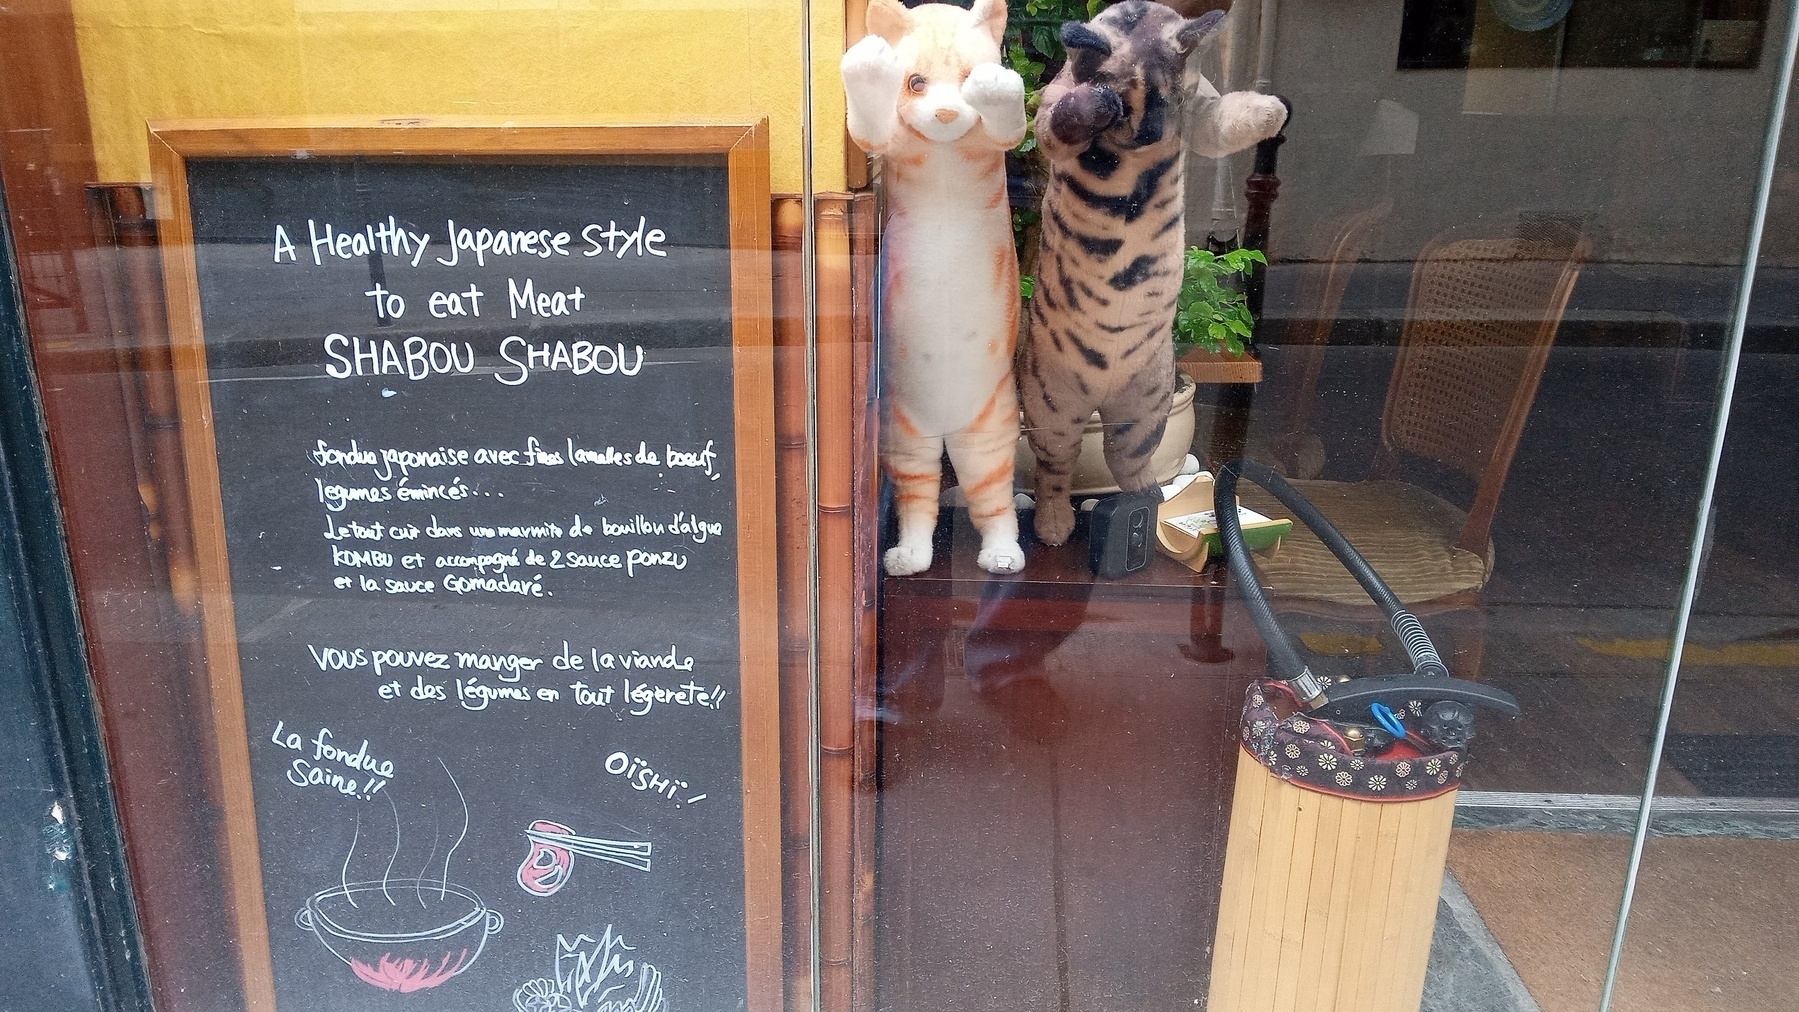 A Healthy Japanese style
to eat Meat
SHABOU SHABOU
fondue japonaise avec fines lamelles de boeuf,
legumes émincés...
Le tout cuir dans une marmite de bouillon d'algue
KOMBU et accompagné de 2 sauce ponzu
et la sauce Gomadaré.
Vous pouvez manger de la viande
et des légumes en tout légèreté!!
La fondue
Saine!!
OÏSHÏ!